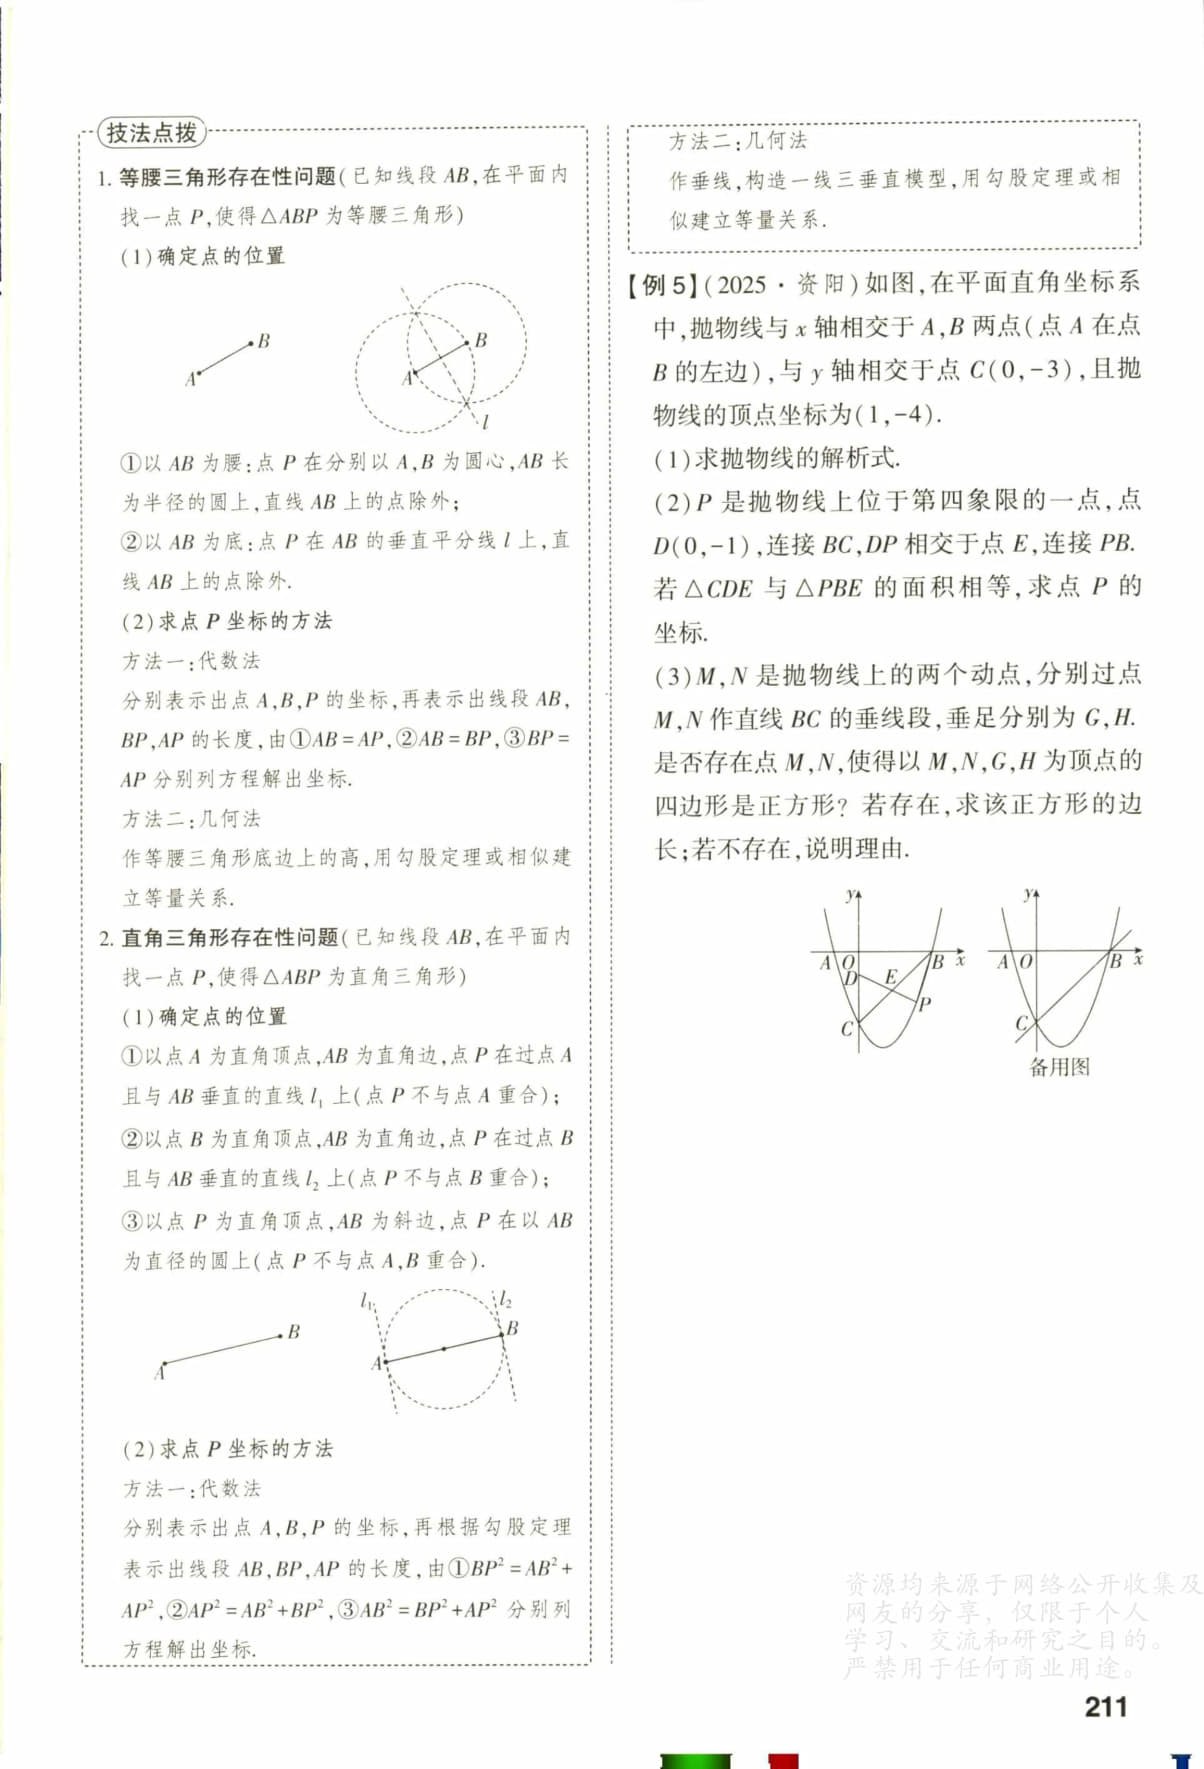 技法点拨
1. 等腰三角形存在性问题(已知线段 AB,在平面内
找一点 P,使得△ABP 为等腰三角形)
(1)确定点的位置
A B
A B l
①以 AB 为腰:点 P 在分别以 A,B 为圆心,AB 长
为半径的圆上,直线 AB 上的点除外;
②以 AB 为底:点 P 在 AB 的垂直平分线 l 上,直
线 AB 上的点除外.
(2)求点 P 坐标的方法
方法一:代数法
分别表示出点 A,B,P 的坐标,再表示出线段 AB,
BP,AP 的长度,由①AB=AP,②AB=BP,③BP=
AP 分别列方程解出坐标.
方法二:几何法
作等腰三角形底边上的高,用勾股定理或相似建
立等量关系.
2. 直角三角形存在性问题(已知线段 AB,在平面内
找一点 P,使得△ABP 为直角三角形)
(1)确定点的位置
①以点 A 为直角顶点,AB 为直角边,点 P 在过点 A
且与 AB 垂直的直线 l₁ 上(点 P 不与点 A 重合);
②以点 B 为直角顶点,AB 为直角边,点 P 在过点 B
且与 AB 垂直的直线 l₂ 上(点 P 不与点 B 重合);
③以点 P 为直角顶点,AB 为斜边,点 P 在以 AB
为直径的圆上(点 P 不与点 A,B 重合).
A B
l₁ l₂ A B
(2)求点 P 坐标的方法
方法一:代数法
分别表示出点 A,B,P 的坐标,再根据勾股定理
表示出线段 AB,BP,AP 的长度,由①BP²=AB²+
AP²,②AP²=AB²+BP²,③AB²=BP²+AP² 分别列
方程解出坐标.
方法二:几何法
作垂线,构造一线三垂直模型,用勾股定理或相
似建立等量关系.
【例 5】(2025·资阳)如图,在平面直角坐标系
中,抛物线与 x 轴相交于 A,B 两点(点 A 在点
B 的左边),与 y 轴相交于点 C(0,-3),且抛
物线的顶点坐标为(1,-4).
(1)求抛物线的解析式.
(2)P 是抛物线上位于第四象限的一点,点
D(0,-1),连接 BC,DP 相交于点 E,连接 PB.
若△CDE 与△PBE 的面积相等,求点 P 的
坐标.
(3)M,N 是抛物线上的两个动点,分别过点
M,N 作直线 BC 的垂线段,垂足分别为 G,H.
是否存在点 M,N,使得以 M,N,G,H 为顶点的
四边形是正方形? 若存在,求该正方形的边
长;若不存在,说明理由.
y A O B x D E P C
y A O B x C
备用图
资源均来源于网络公开收集及
网友的分享，仅限于个人
学习、交流和研究之目的。
严禁用于任何商业用途。
211